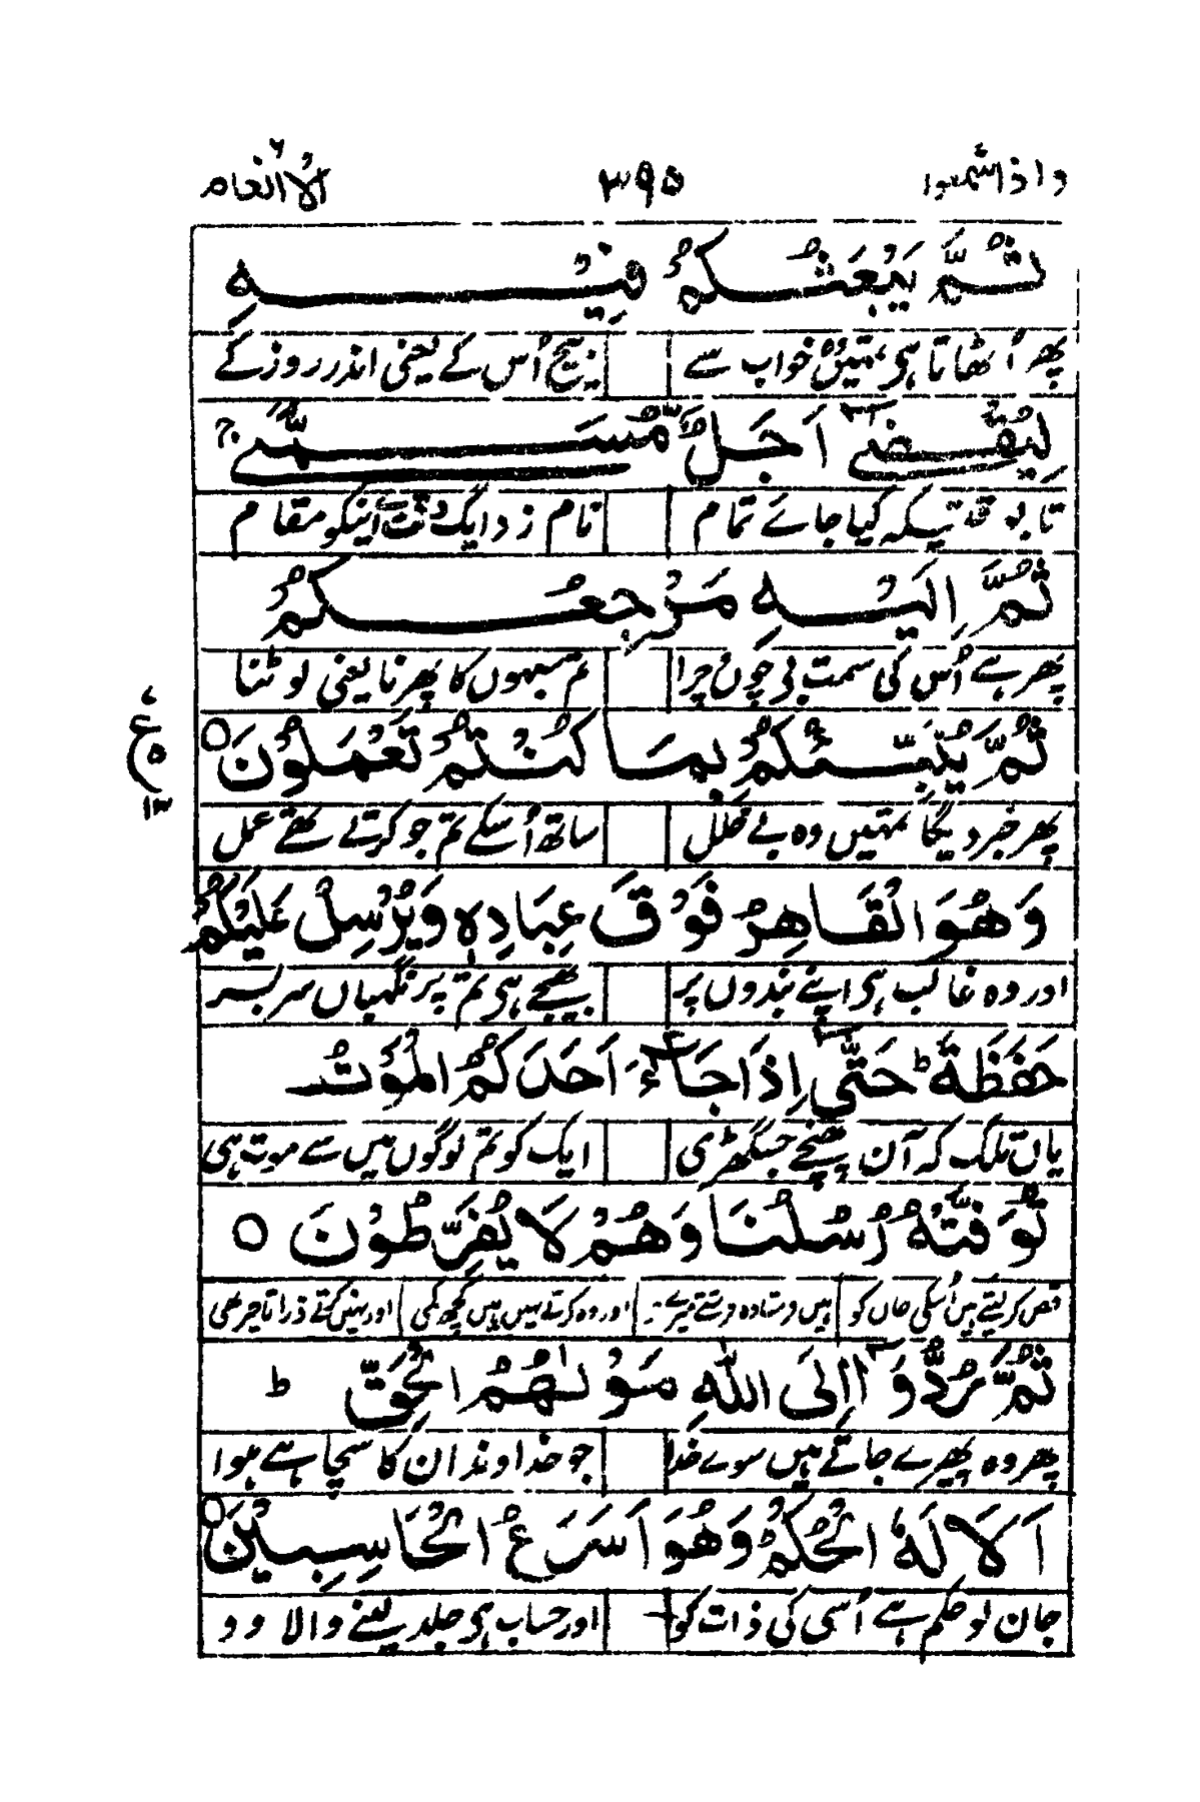 واذاسمعوا ۳۹۵ الانعام ۶
ثُمَّ يَبْعَثُكُمْ فِيْهِ
پھر اُٹھاتا ہی تمہیں خواب سے بیچ اُس کے یعنی اندر روز کے
لِيُقْضٰٓى اَجَلٌ مُّسَمًّى ۚ
تا بوقتیکہ کیا جائے تمام نام زد ایک مقام
ثُمَّ اِلَيْهِ مَرْجِعُكُمْ
پھر ہے اُس کی سمت بی چون چرا تم سبہوں کا پھرنا یعنی لوٹنا
ثُمَّ يُنَبِّئُكُمْ بِمَا كُنْتُمْ تَعْمَلُوْنَ ○
ع
۷
۵
۱۳
پھر خبر دیگا تمہیں وہ بے خلل ساتھ اُسکے تم جو کرتے تھے عمل
وَهُوَ الْقَاهِرُ فَوْقَ عِبَادِهٖ وَيُرْسِلُ عَلَيْكُمْ
اور وہ غالب ہی اپنے بندوں پر بھیجے ہی تم پر نگہباں سربسر
حَفَظَةً ؕ حَتّٰٓى اِذَا جَآءَ اَحَدَكُمُ الْمَوْتُ
یاں تلک کہ آن پہنچے جسگھڑی ایک کو تم لوگوں میں سے موت ہی
تَوَفَّتْهُ رُسُلُنَا وَهُمْ لَا يُفَرِّطُوْنَ ○
قبض کر لیتے ہیں اُسکی جاں کو ہیں فرستادہ فرشتے میرے اور وہ کرتے نہیں ہیں کچھ کمی اور نہیں کرتے ذرا تاخیر بھی
ثُمَّ رُدُّوْٓا اِلَى اللّٰهِ مَوْلٰىهُمُ الْحَقِّ ؕ
پھر وہ پھیرے جاتے ہیں سوے خدا جو خداوند ان کا سچا ہے ہوا
اَلَا لَهُ الْحُكْمُ وَهُوَ اَسْرَعُ الْحَاسِبِيْنَ ○
جان لو حکم ہے اُسی کی ذات کو اور حساب ہی جلد لینے والا وو